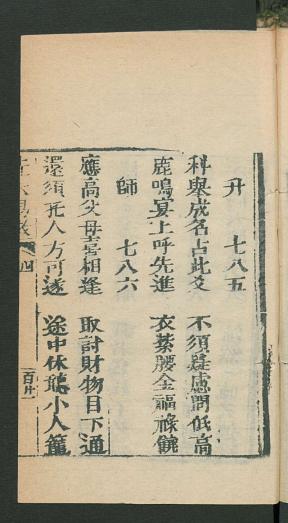 升 七八五
科舉成名占此爻 不須疑慮問低高
鹿鳴宴上呼先進 衣紫腰金福祿饒
師 七八六
應高父母喜相逢 取討財物目下通
還須托人方可遂 途中休聽小人籠
卷四